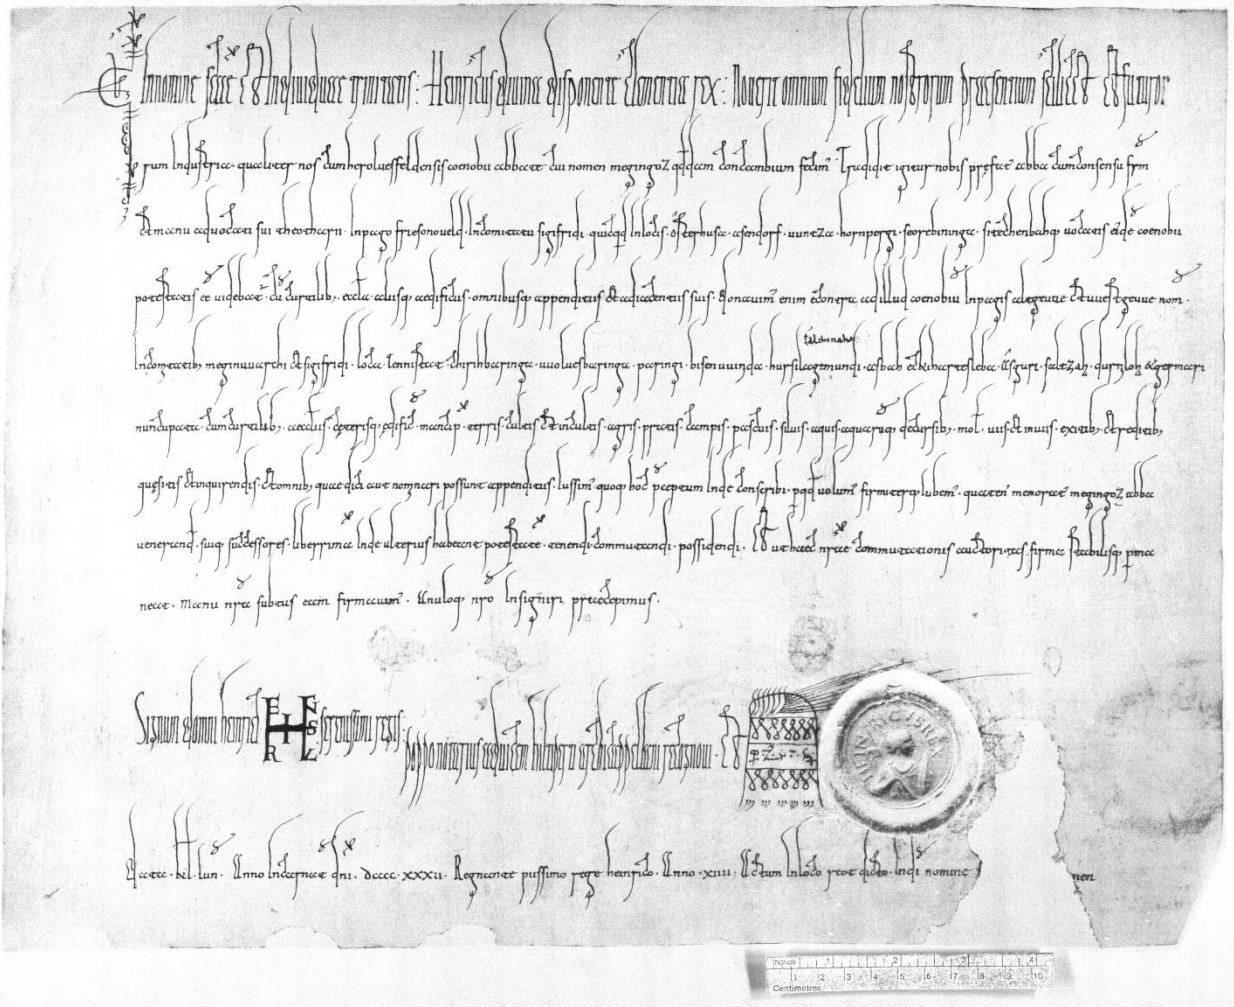 In nomine scae et indiuiduae trinitatis. Heinricus diuina disponente clementia rex. Nouerit omnium fidelium nostrorum praesentium scilicet et futuro
rum industria. qualiter nos cum heroluesfeldensis coenobii abbate cui nomen megingoz quoddam concambium fecim. Tradidit igitur nobis prefat abba cum consensu frm
et manu aduocati sui theotharii. In pago friesonoueld. In comitatu sigifridi. quicqd in locis osterhusa. asendorf. uuneza. hornpergi. screbininga. sitechenbach uocatis eide coenobii
potestatis ee uidebat. cu curtilib, eccla. aliisq, aedificiis. omnibusq, appendiciis et adiacentiis suis. Donauim enim econtra ad illud coenobiu in pagis alegeuue et uuestgeuue nom.
taldunaha
In comitatib, meginuuarchi et sigifridi. loca. lennistat. churinbaringa. uuoluesbaringa. paringi. bisenuuinda. hursilagemundi. asbach et kihartesleba. asguri. saltzah. durnloh et germari
nuncupata. cum curtilib, aecclis. ceterisq, edific. mancip. terris. cultis et incultis. agris. pratis. campis. pascuis. siluis. aquis. aquarūq, decursib, mol. uiis et inuiis. exitib, et reditib,
quesitis et inquirendis. et omnib, quae dici aut nominari possunt appendiciis. Iussim quoq, hoc pceptum inde conscribi. p qd uolum firmiterq, iubem. quaten memorat megingoz abba
uenerand. suiq, successores. liberrima inde ulterius habeant potestate. tenendi. commutandi. possidendi. Et ut haec nrae commutationis auctoritas firma stabilisq, pma
neat. manu nra subtus eam firmauim. Anuloq, nro insigniri praecepimus.
Signum domni heinrici serenissimi regis.
poppo notarius ad uicem hiltiperti archicappellani recognoui. Et
HEINRICVS REX
Data. kl. iun. Anno incarnat dni. dcccc. xxxii. Regnante piissimo rege heinrico. Anno. xiiii. Actum in loco reot dicto. in di nomine
men
Inches 1 2 3 4
1 2 3 4 5 6 7 8 9 10
Centimetres